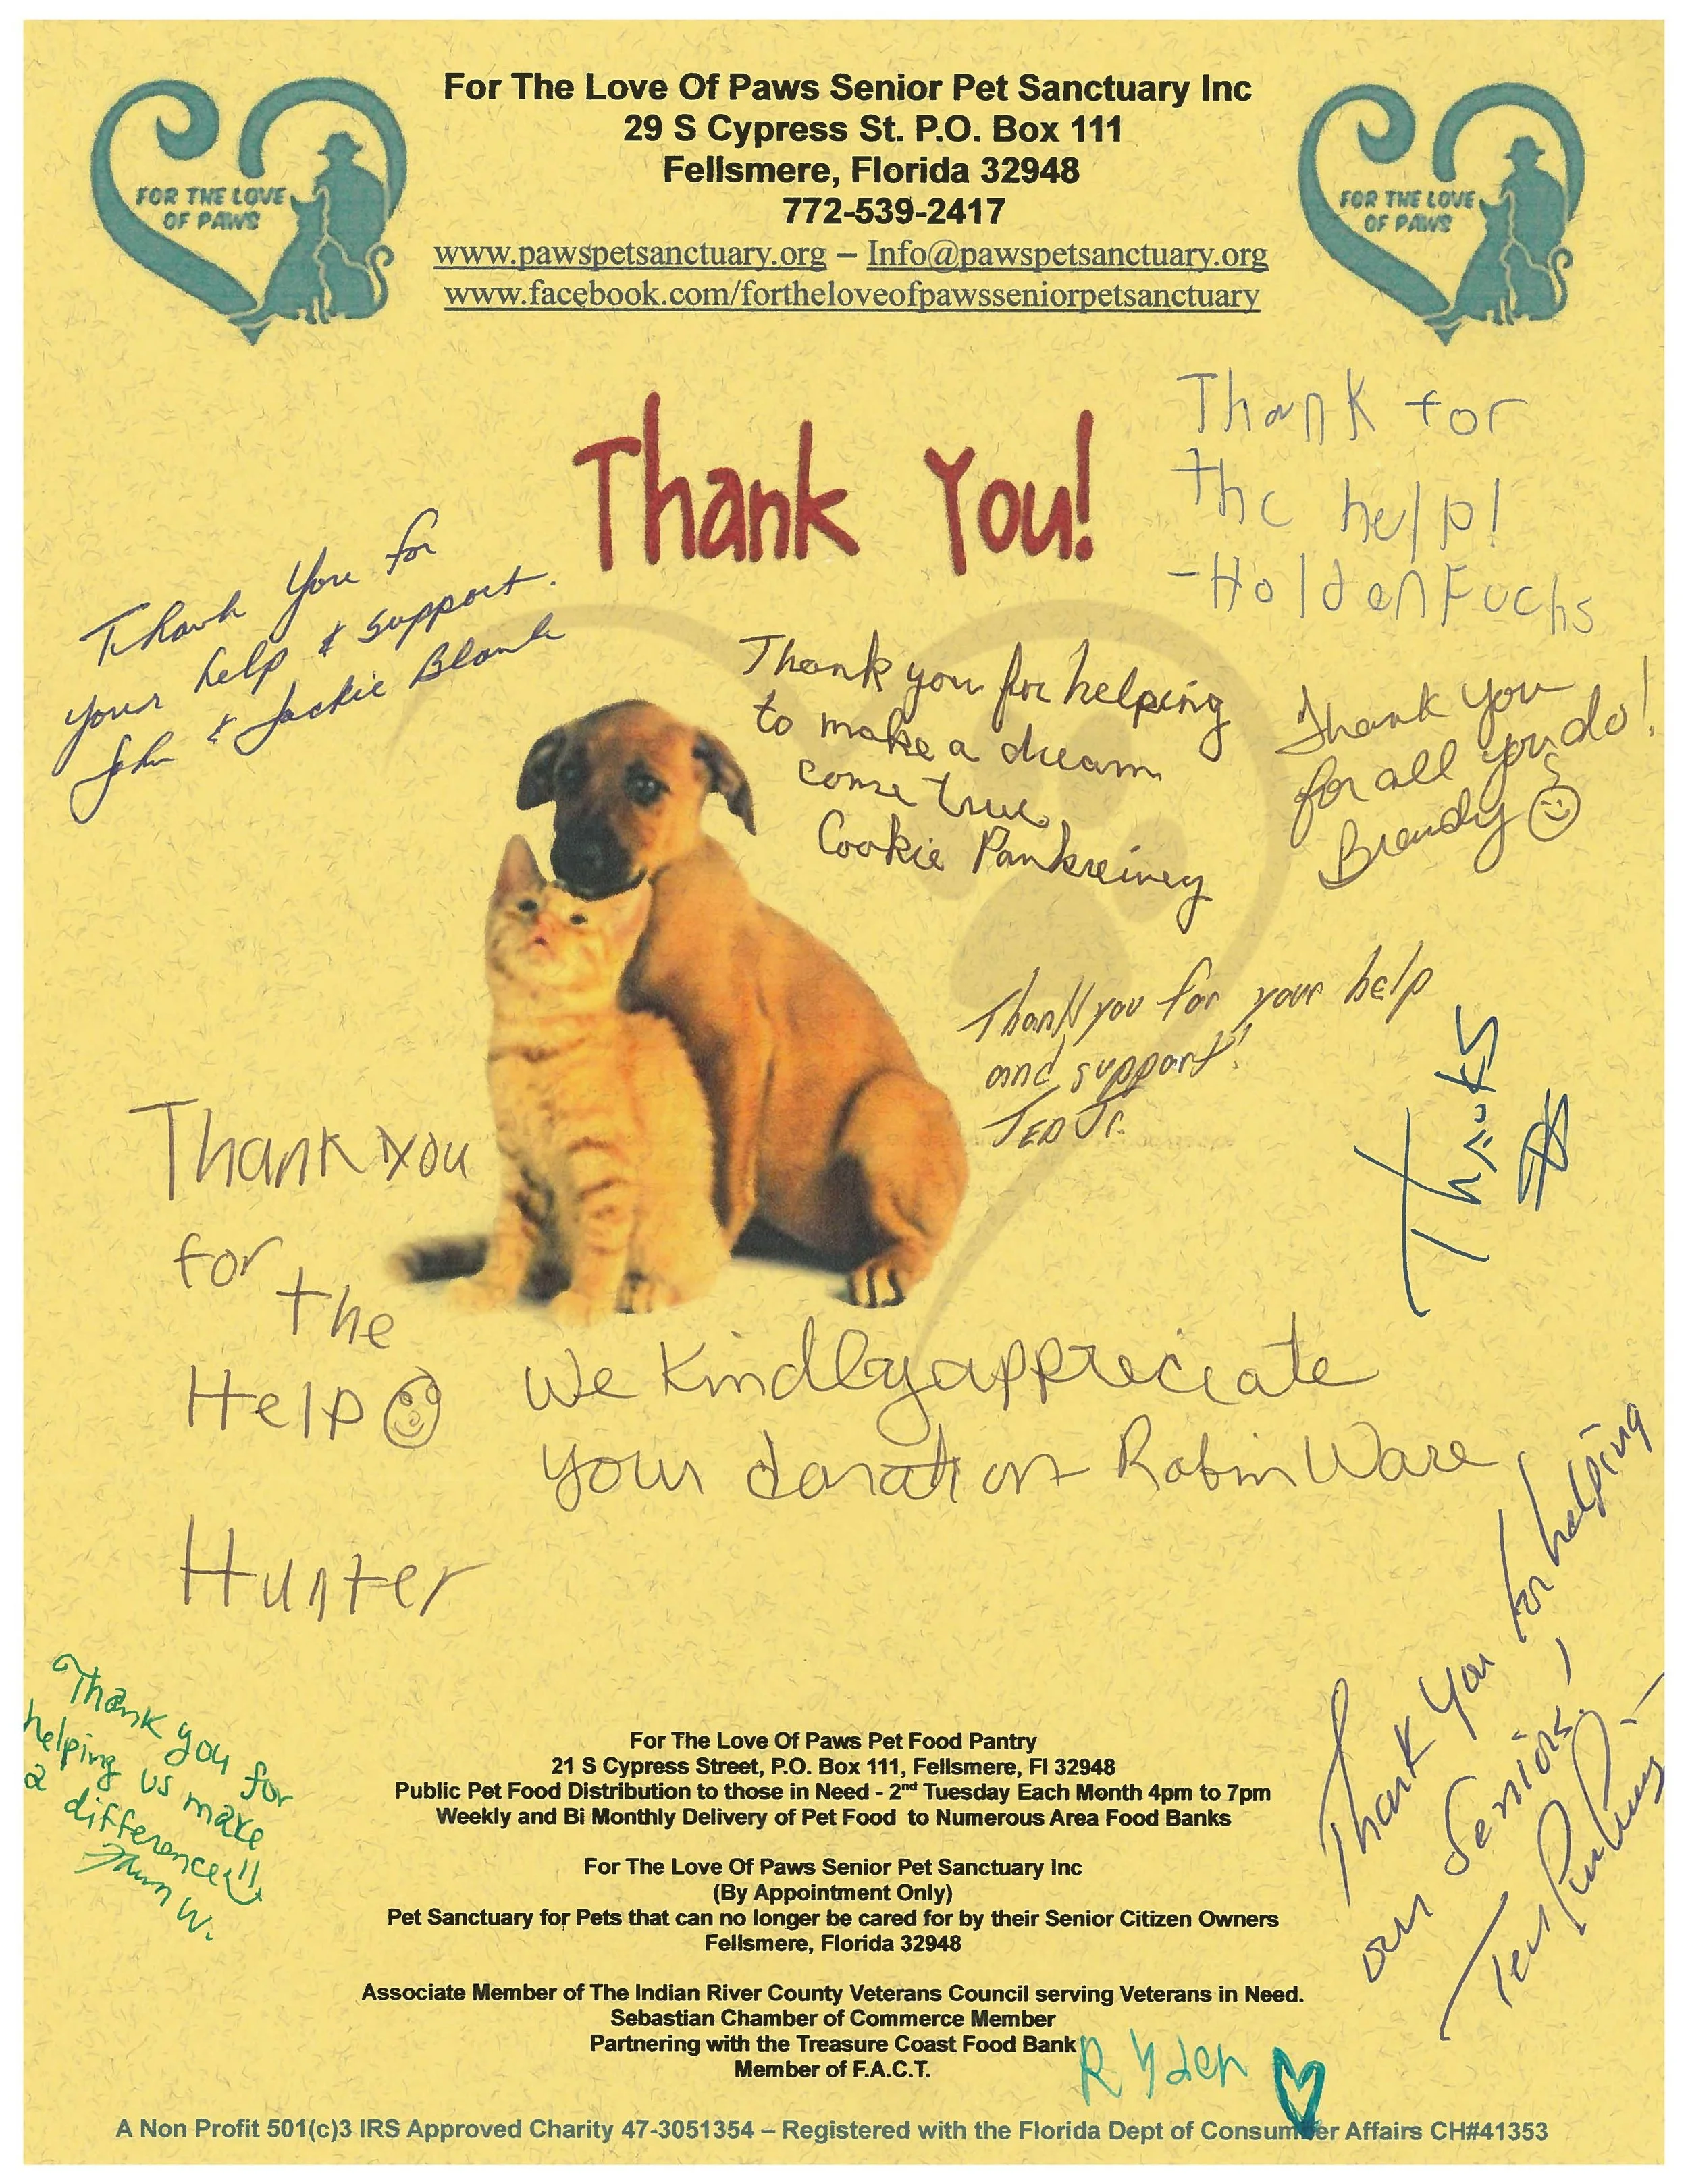 For The Love Of Paws Senior Pet Sanctuary Inc
29 S Cypress St. P.O. Box 111
Fellsmere, Florida 32948
772-539-2417
www.pawspetsanctuary.org – Info@pawspetsanctuary.org
www.facebook.com/fortheloveofpawsseniorpetsanctuary
FOR THE LOVE
OF PAWS
FOR THE LOVE
OF PAWS
Thank You!
Thank for
the help!
-Holden Fuchs
Thank You for
your help & support.
John & Jackie Blank
Thank you for helping
to make a dream
come true
Cookie
Thank you
for all you do!
Brandy
Thank you for your help
and support!
TED Jr.
Thanks
Thank you
for
the
Help
Hunter
We Kindly appreciate
your donation Robin Ware
Thank You for helping
our Seniors,
Thank you for
helping us make
a difference!!
W.
For The Love Of Paws Pet Food Pantry
21 S Cypress Street, P.O. Box 111, Fellsmere, Fl 32948
Public Pet Food Distribution to those in Need - 2nd Tuesday Each Month 4pm to 7pm
Weekly and Bi Monthly Delivery of Pet Food to Numerous Area Food Banks
For The Love Of Paws Senior Pet Sanctuary Inc
(By Appointment Only)
Pet Sanctuary for Pets that can no longer be cared for by their Senior Citizen Owners
Fellsmere, Florida 32948
Associate Member of The Indian River County Veterans Council serving Veterans in Need.
Sebastian Chamber of Commerce Member
Partnering with the Treasure Coast Food Bank
Member of F.A.C.T.
Ryder
A Non Profit 501(c)3 IRS Approved Charity 47-3051354 – Registered with the Florida Dept of Consumer Affairs CH#41353